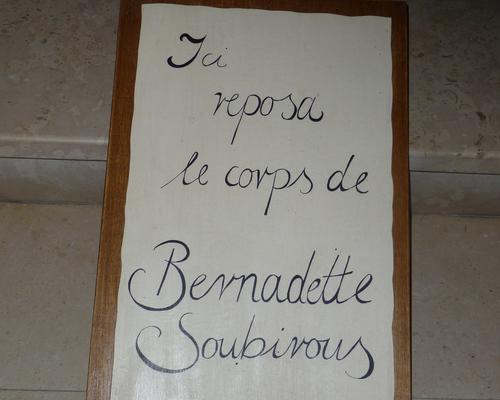 Ici
reposa
le corps de
Bernadette
Soubirous